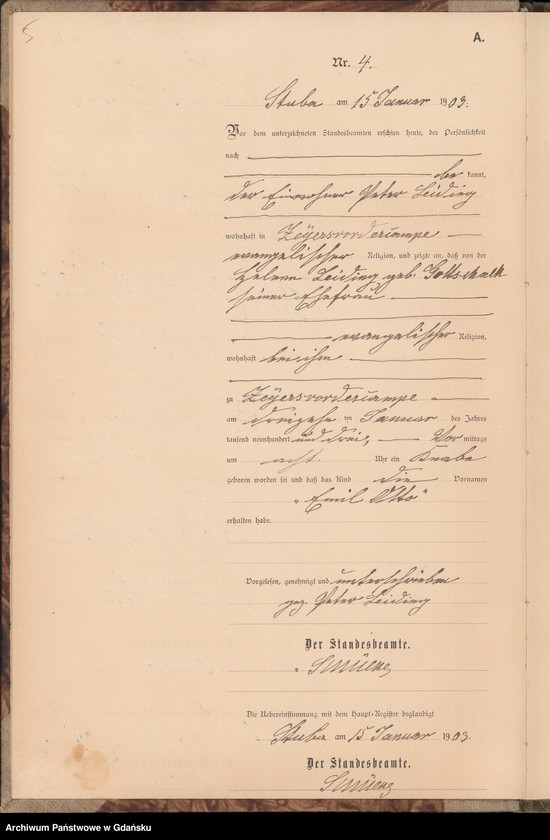 5
A.
Nr. 4.
Stuba am 15 Januar 1903.
Vor dem unterzeichneten Standesbeamten erschien heute, der Persönlichkeit
nach
be kannt,
der Einwohner Peter Leiding
wohnhaft in Zeyersvordercampe
evangelischer Religion, und zeigte an, daß von der
Helene Leiding geb. Gottschalk
seiner Ehefrau
evangelischer Religion,
wohnhaft bei ihm
zu Zeyersvordercampe
am dreizehn ten Januar des Jahres
tausend neunhundert und drei, Vor mittags
um acht Uhr ein Knabe
geboren worden sei und daß das Kind die Vornamen
"Emil Otto"
erhalten habe.
Vorgelesen, genehmigt und unterschrieben
gez. Peter Leiding
Der Standesbeamte.
Die Uebereinstimmung mit dem Haupt-Register beglaubigt
Stuba am 15 Januar 1903.
Der Standesbeamte.
Archiwum Państwowe w Gdańsku